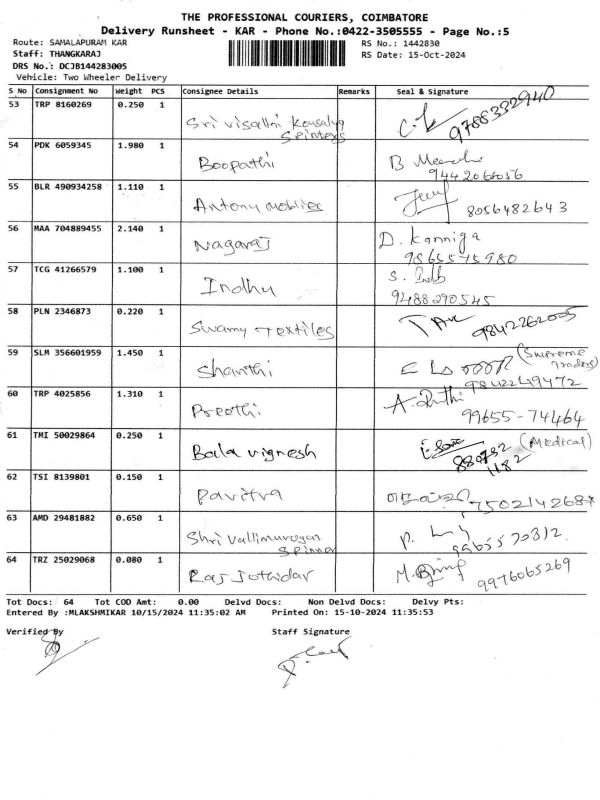 THE PROFESSIONAL COURIERS, COIMBATORE
Delivery Runsheet - KAR - Phone No.:0422-3505555 - Page No.:5
Route: SAMALAPURAM KAR RS No.: 1442830
Staff: THANGKARAJ RS Date: 15-Oct-2024
DRS No.: DCJB144283005
Vehicle: Two Wheeler Delivery
S No Consignment No Weight PCS Consignee Details Remarks Seal & Signature
53 TRP 8160269 0.250 1 Sri visalni Kousalya 9788332940
Spintexs
54 PDK 6059345 1.980 1 Boopathi B
9442066056
55 BLR 490934258 1.110 1 Antony mobiles 8056482643
56 MAA 704889455 2.140 1 Nagaraj D. Kanniga
9865575980
57 TCG 41266579 1.100 1 Indhu S.
9488290545
58 PLN 2346873 0.220 1 Swamy Textiles 9842262005
59 SLM 356601959 1.450 1 Shanthi (Supreme
Traders)
9842249472
60 TRP 4025856 1.310 1 Preethi A.
99655-74464
61 TMI 50029864 0.250 1 Bala vignesh (Medical)
880752
1182
62 TSI 8139801 0.150 1 Pavitra 7502142687
63 AMD 29481882 0.650 1 Shri Vallimurugan P.
Spinner
64 TRZ 25029068 0.080 1 Raj Jothidar M.
9976065269
Tot Docs: 64 Tot COD Amt: 0.00 Delvd Docs: Non Delvd Docs: Delvy Pts:
Entered By :MLAKSHMIKAR 10/15/2024 11:35:02 AM Printed On: 15-10-2024 11:35:53
Verified By Staff Signature